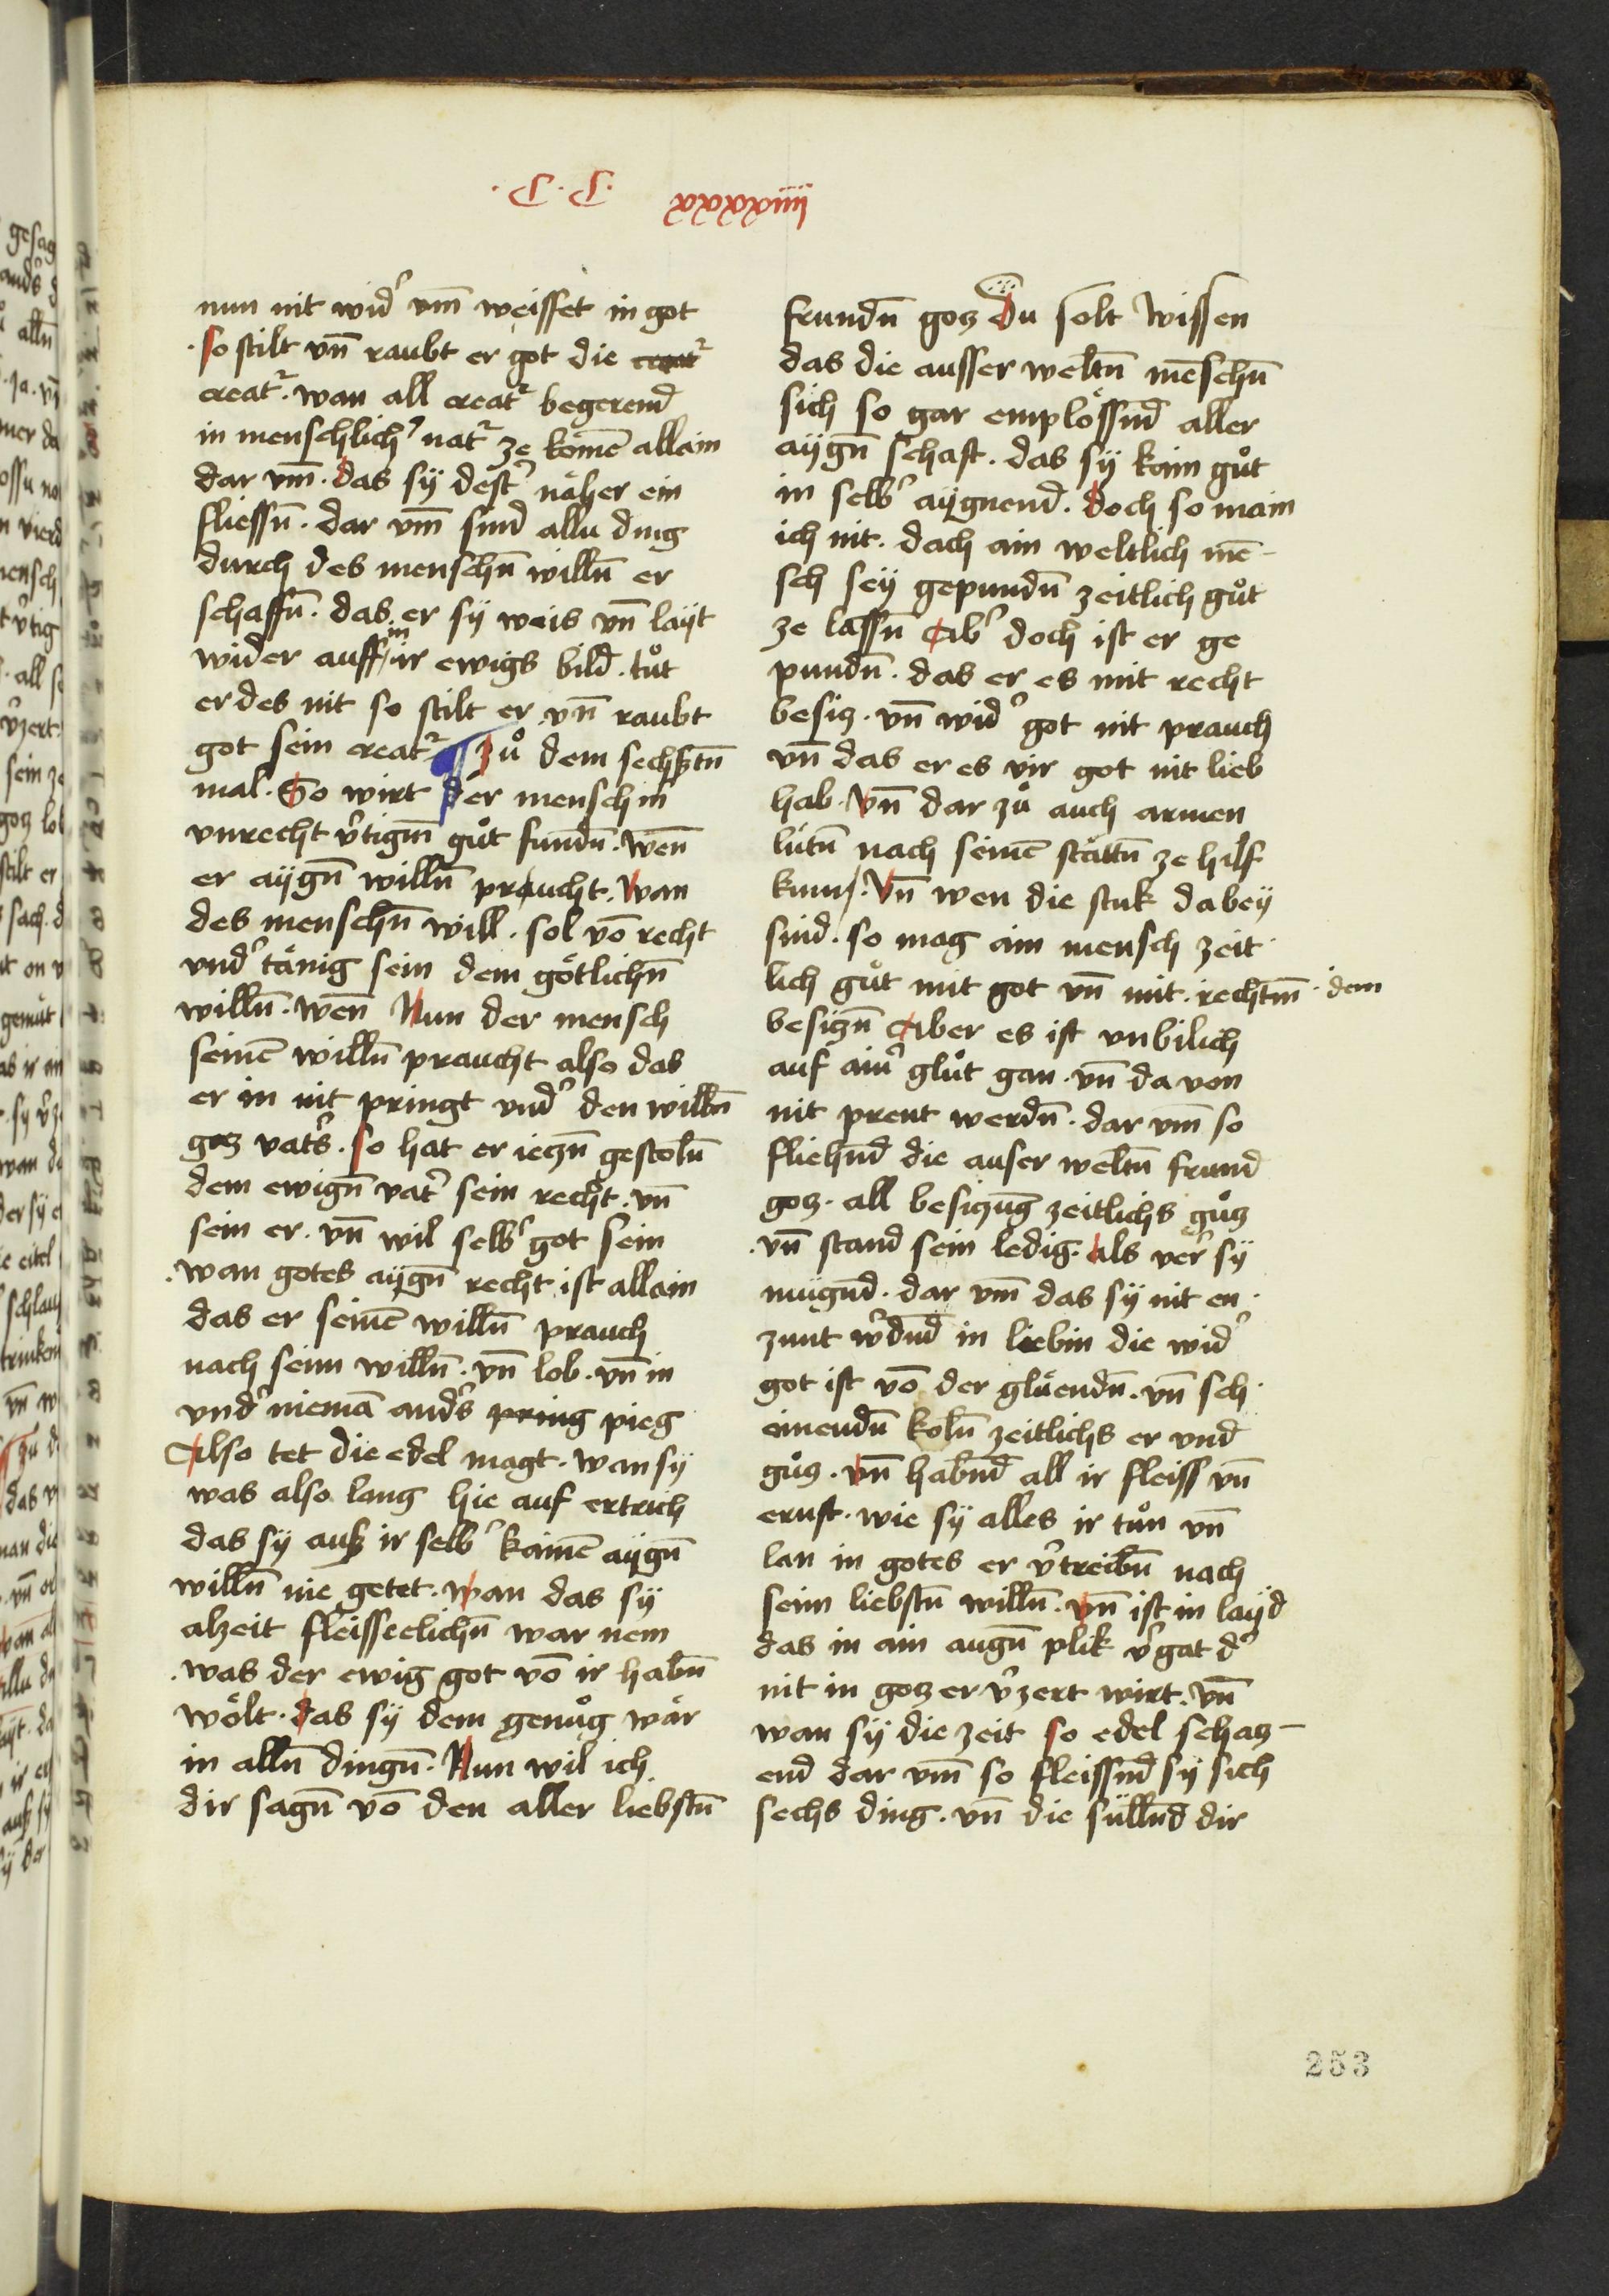 ·C·C· xxxxxiiii
nun nit widˀ vm̄ weisset in got
·so stilt vn̄ raubt er got die
creatˀ· wan all creatˀ begerend
in menschlichˀ natˀ ze kömē allain
dar vm̄· das sÿ destˀ näher ein
fliessn̄· dar vm̄ sind allu ding
durch des menschn̄ willn̄ er
schaffn̄· das er sÿ weis vn̄ laÿt
wider auff in ir ewigs bild· tuͦt
er des nit so stilt er vn̄ raubt
got sein creatˀ zuͦ dem sechßtn̄
mal· So wirt der mensch in
vnrecht vˀtigm̄ guͦt fundn̄· wen̄
er aÿgn̄ willn̄ praucht· wan
des menschn̄ will· sol vō recht
vndˀ tänig sein dem götlichn̄
willn̄· wen̄ Nun der mensch
seinē willn̄ praucht also das
er in nit pringt vndˀ den willn̄
gotz vatˀs· so hat er ieczn̄ gestoln̄
dem ewign̄ vatˀ sein recht· vn̄
sein er· vn̄ wil selbˀ got sein
·wan gotes aÿgn̄ recht ist allain
das er seinē willn̄ prauch
nach seim willn̄· vn̄ lob· vn̄ in
vndˀ niemā andˀs pring pieg
Also tet die edel magt· wan sÿ
was also lang hie auf ertrich
das sÿ auß ir selbˀ kainē aÿgn̄
willn̄ nie getet· wan das sÿ
alzeit fleisseclichn̄ war nem
·was der ewig got vō ir habn̄
wölt· das sÿ dem genuͦg wär
in alln̄ dingn̄· Nun wil ich
dir sagn̄ vō den aller liebstn̄
frundn̄ gotz Du solt wissen
das die ausser weltn̄ mēschn̄
sich so gar emplössnd aller
aÿgn̄ schaft· das sÿ kain guͦt
in selbˀ aÿgnend· doch so main
ich nit· dach ain weltlich mē-
sch seÿ gepundn̄ zeitlich guͦt
ze lassn̄ Abˀ doch ist er ge
pundn̄· das er es mit recht
besitz· vn̄ widˀ got nit prauch
vn̄ das er es vir got nit lieb
hab· Vn̄ dar zuͦ auch armen
lütn̄ nach seinē stattn̄ ze hilf
kum· Vn̄ wen die stuk da beÿ
sind· so mag ain mensch zeit·
lich guͦt mit got vn̄ mit rechtm̄· dem
besiczn̄ Aber es ist vnbilich
auf ainˀ gluͦt gan· vn̄ da von
nit prent werdn̄· dar vm̄ so
fliehnd die auser weltn̄ frund
gotz· all besiczūg zeitlichs guͦtz
·vn̄ stand sein ledig· als verˀ sÿ
mügnd· dar vm̄ das sÿ nit en·
zunt wˀdnd in liebin die widˀ
got ist vō der gluͤendn̄· vn̄ sch·
einendn̄ koln̄ zeitlichs er vnd
guͦtz· vn̄ habnd all ir fleiss vn̄
ernst· wie sÿ alles ir tuͦn vn̄
lan in gotes er vˀtreibn̄ nach
seim liebstn̄ willn̄· vn̄ ist in laÿd
das in ain augn̄ plik vˀgat dˀ
nit in gotz er vˀzert wirt· vn̄
wan sÿ die zeit so edel schatz-
end dar vm̄ so fleissnd sÿ sich
sechs ding· vn̄ die süllnd dir
253